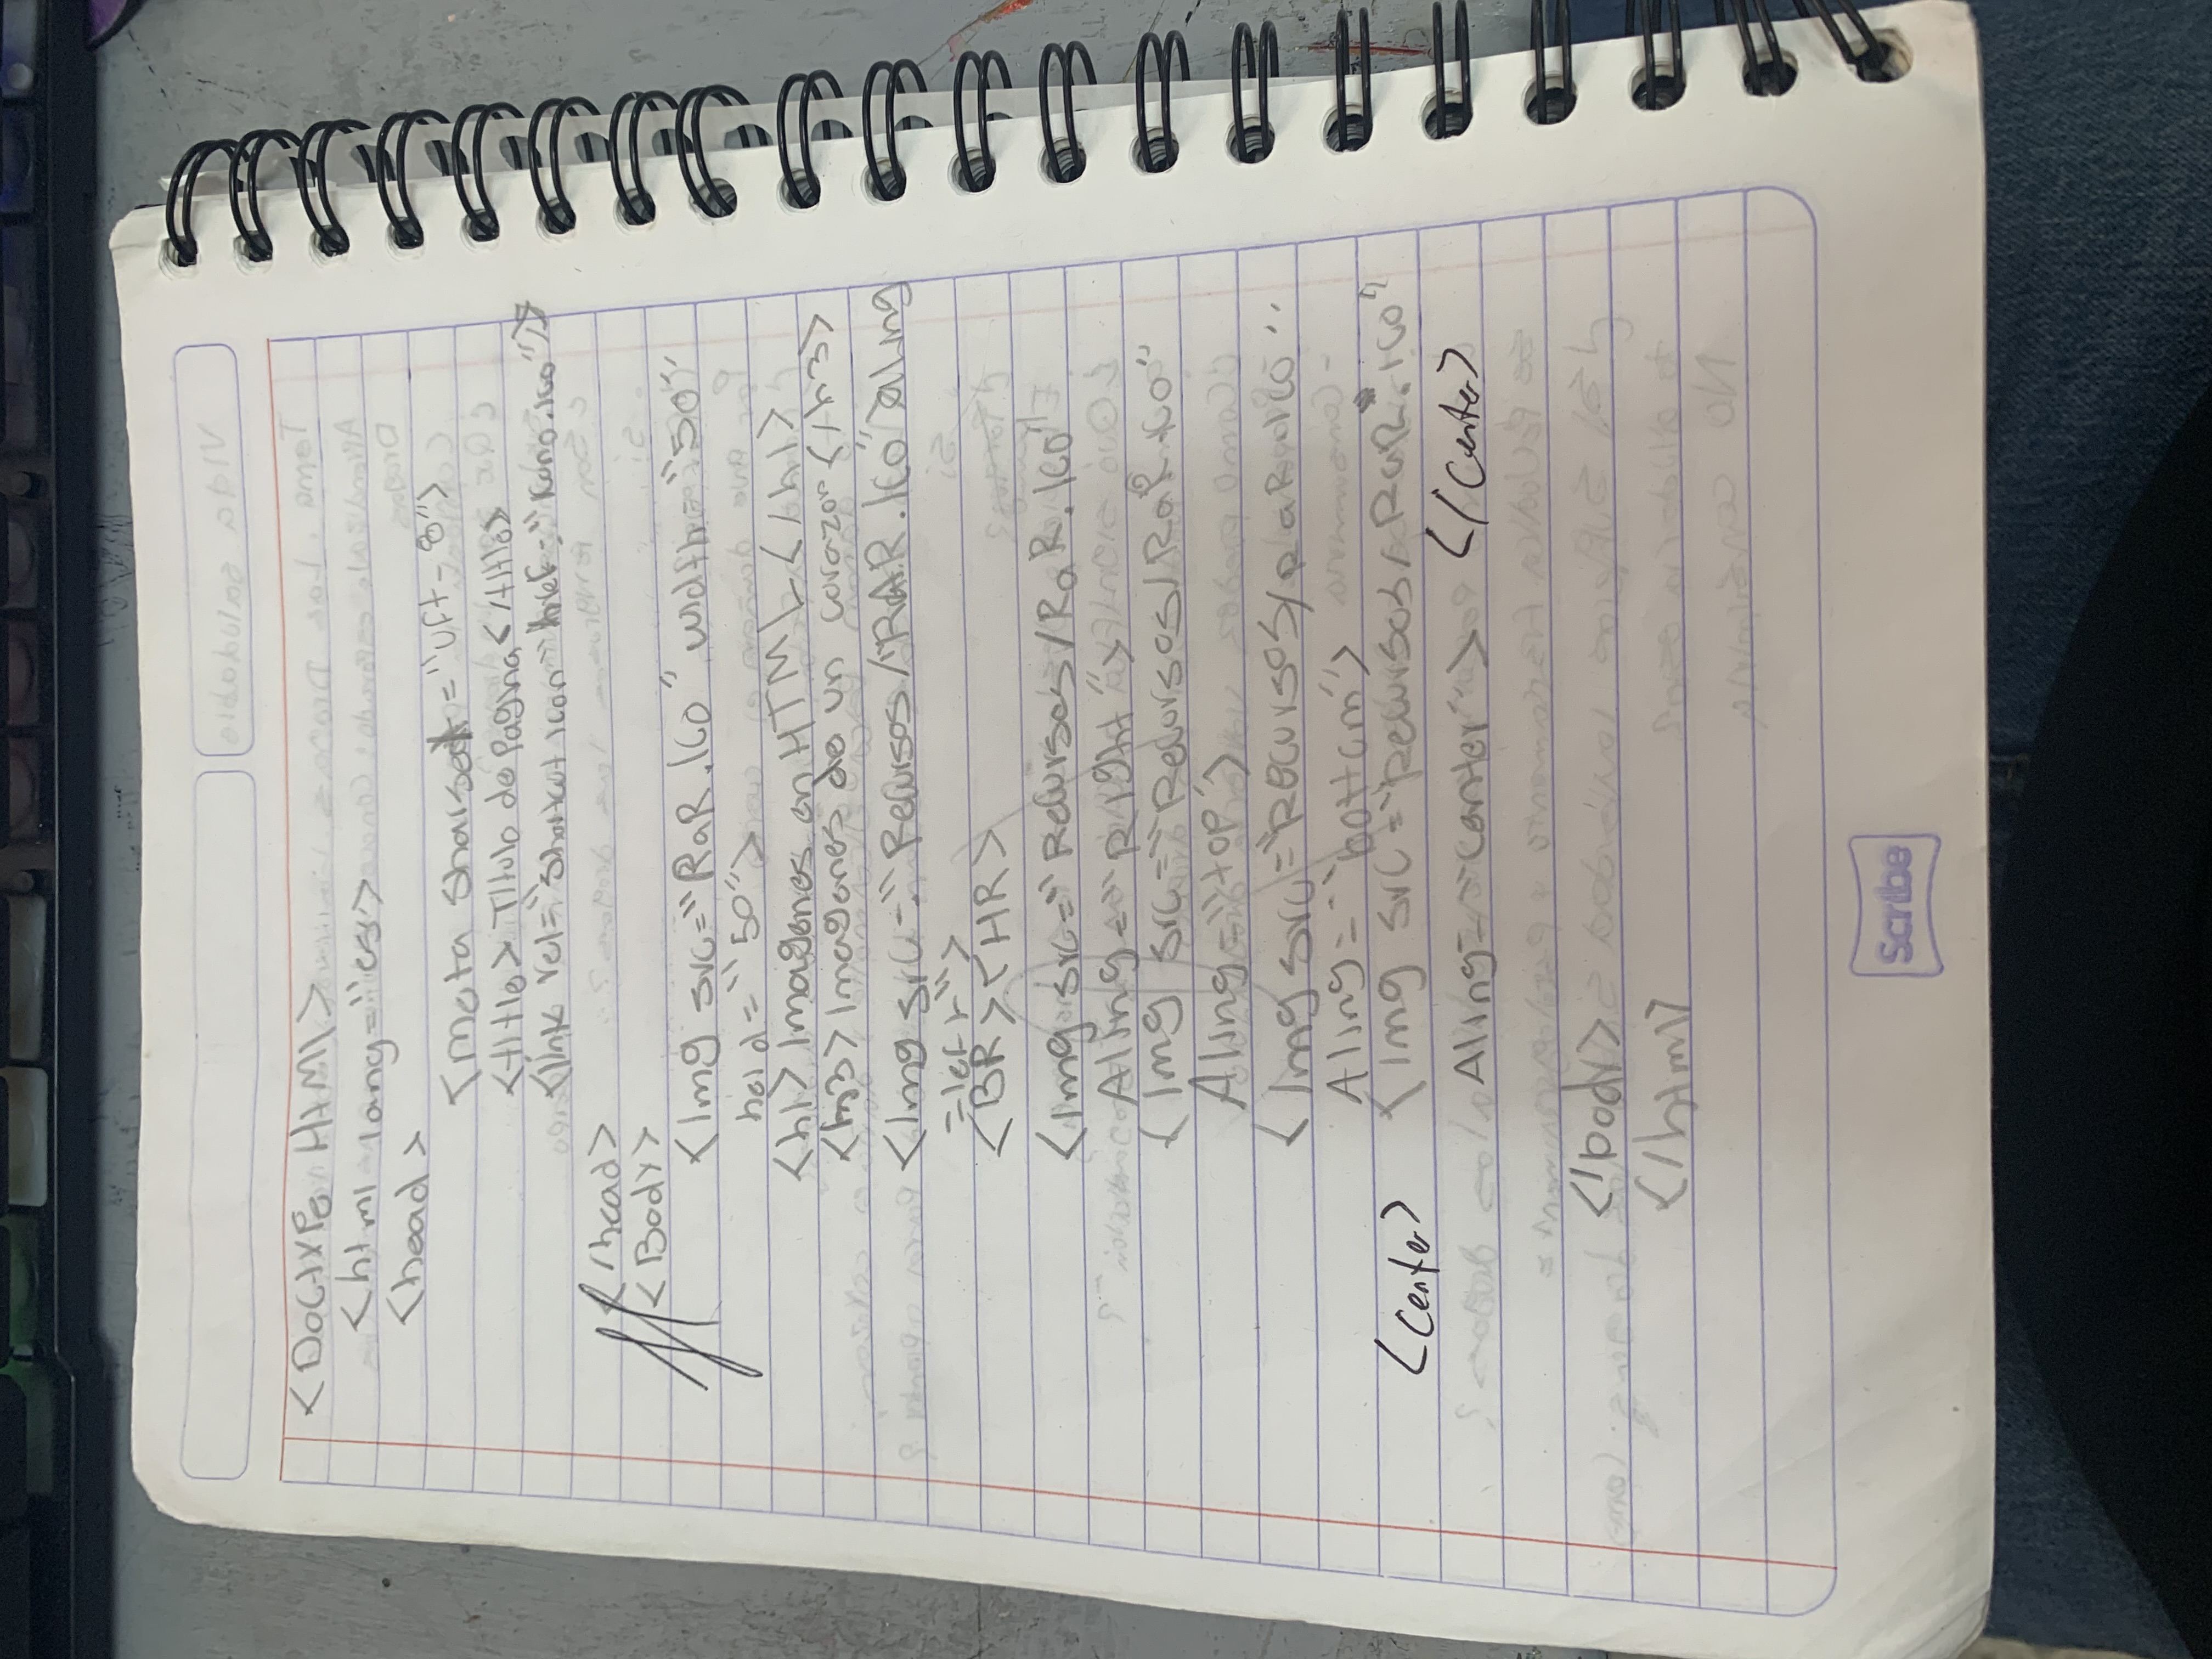 <Doctype HtMl>
<html lang="es">
<head>
<meta sharset="uft-8">
<title> Titulo de Pagina</title>
<link rel="Shortcut icon" href="Icono.ico"/>
</head>
<Body>
<Img src="RaR.Ico" width="50"
heid="50">
<h1> Imagenes en HTML</h1>
<h3> Imagenes de un corazon</h3>
<Img src="Recursos/RAR.Ico" aling
=left">
<BR><HR>
<Img src="Recursos/RaR.Ico"
Aling="Right">
<Img src="Recursos/RaR.Ico"
Aling="top">
<Img src="Recursos/RaR.Ico"
Aling="bottom">
<center> <Img src="Recursos/RaR.ico"
Aling="center"> </center>
</body>
</html>
Scribe